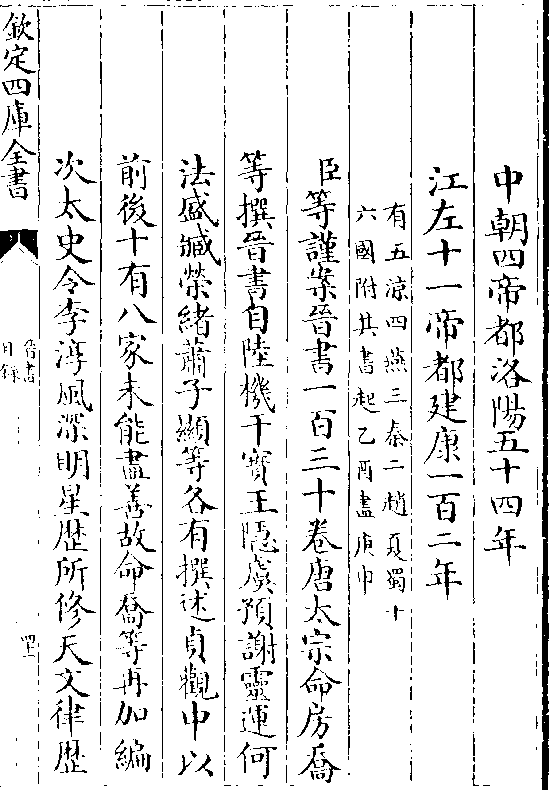 中朝四帝都洛陽五十四年
江左十一帝都建康一百二年
有五涼四燕三秦二趙夏蜀十
六國附其書起乙酉盡庚申
臣等謹案晉書一百三十卷唐太宗命房喬
等撰晉書自陸機干寶王隱虞預謝靈運何
法盛臧榮緒蕭子顯等各有撰述貞觀中以
前後十有八家未能盡善故命喬等再加編
次太史令李淳風深明星歴所修天文律歴
欽定四庫全書
晉書
目録